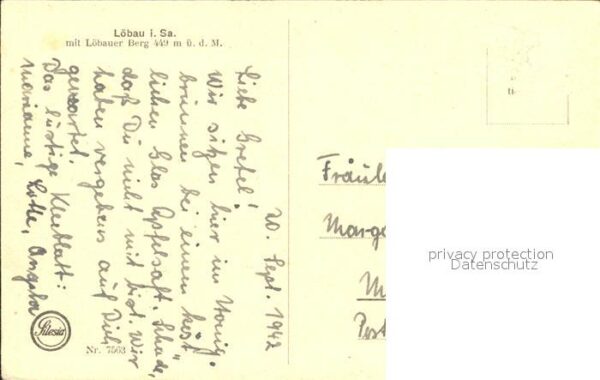 Löbau i. Sa.
mit Löbauer Berg 449 m ü. d. M.
20. Sept. 1942
Liebe Gretel!
Wir sitzen hier im Honig-
brunnen bei einem köst-
lichen Glas Apfelsaft. Schade,
daß Du nicht mit bist. Wir
haben vergebens auf Dich
gewartet.
Das lustige Kleeblatt:
Marianne, Lotte, Angela
Silesia
Nr. 7563
Fräule
Marga
M
Post
privacy protection
Datenschutz